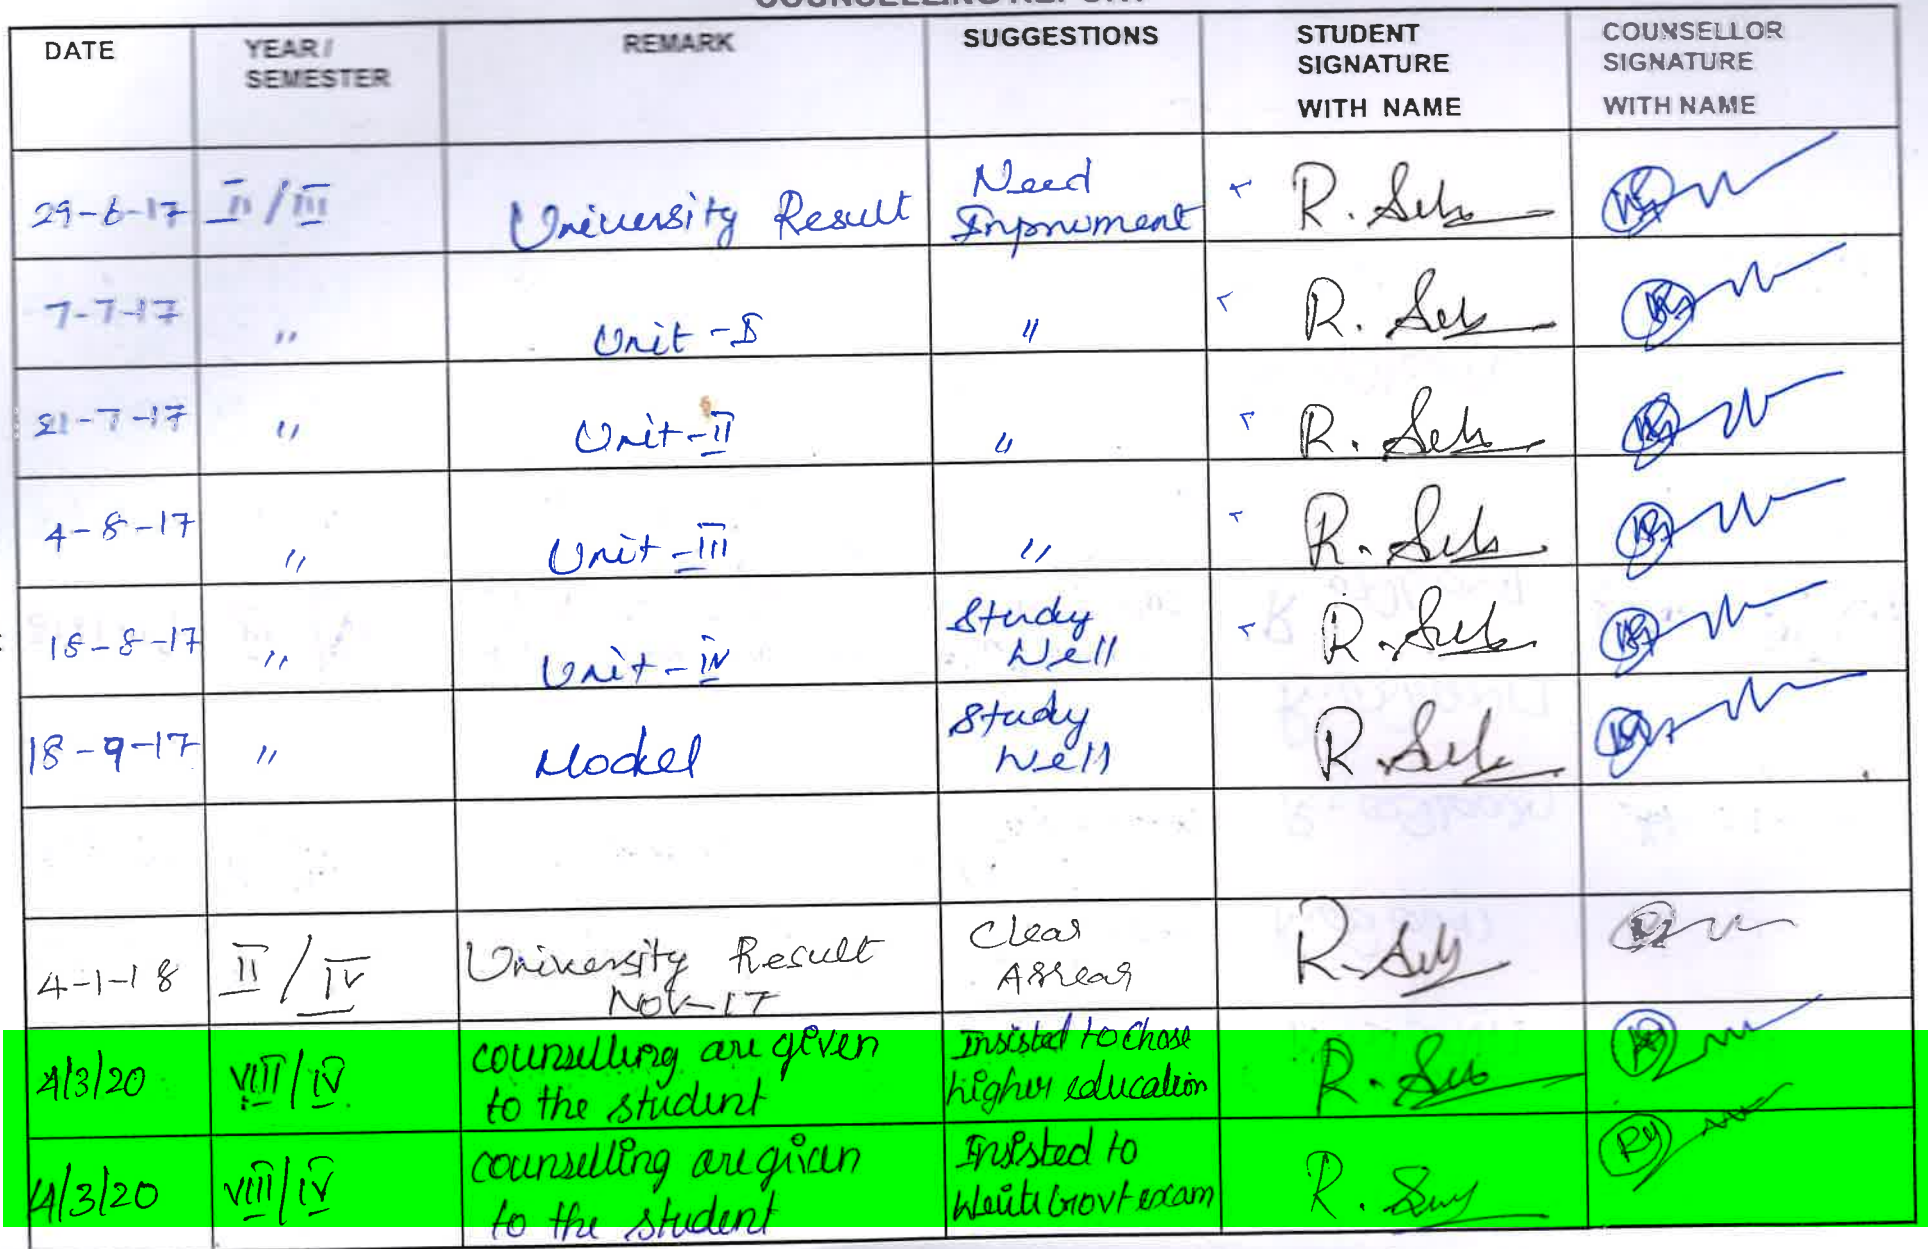 COUNSELLING REPORT
DATE
YEAR /
SEMESTER
REMARK
SUGGESTIONS
STUDENT
SIGNATURE
WITH NAME
COUNSELLOR
SIGNATURE
WITH NAME
29-6-17 II / III University Result Need
Inprnument
7-7-17 " Unit - I "
21-7-17 " Unit - II "
4-8-17 " Unit - III "
18-8-17 " Unit - IV Study
Well
18-9-17 " Model Study
Well
4-1-18 II / IV University Result
Nov-17
Clear
Arrear
4/3/20 VIII / IV counselling are given
to the student
Insisted to Chose
higher education
4/3/20 VIII / IV counselling are given
to the student
Insisted to
Write Govt exam